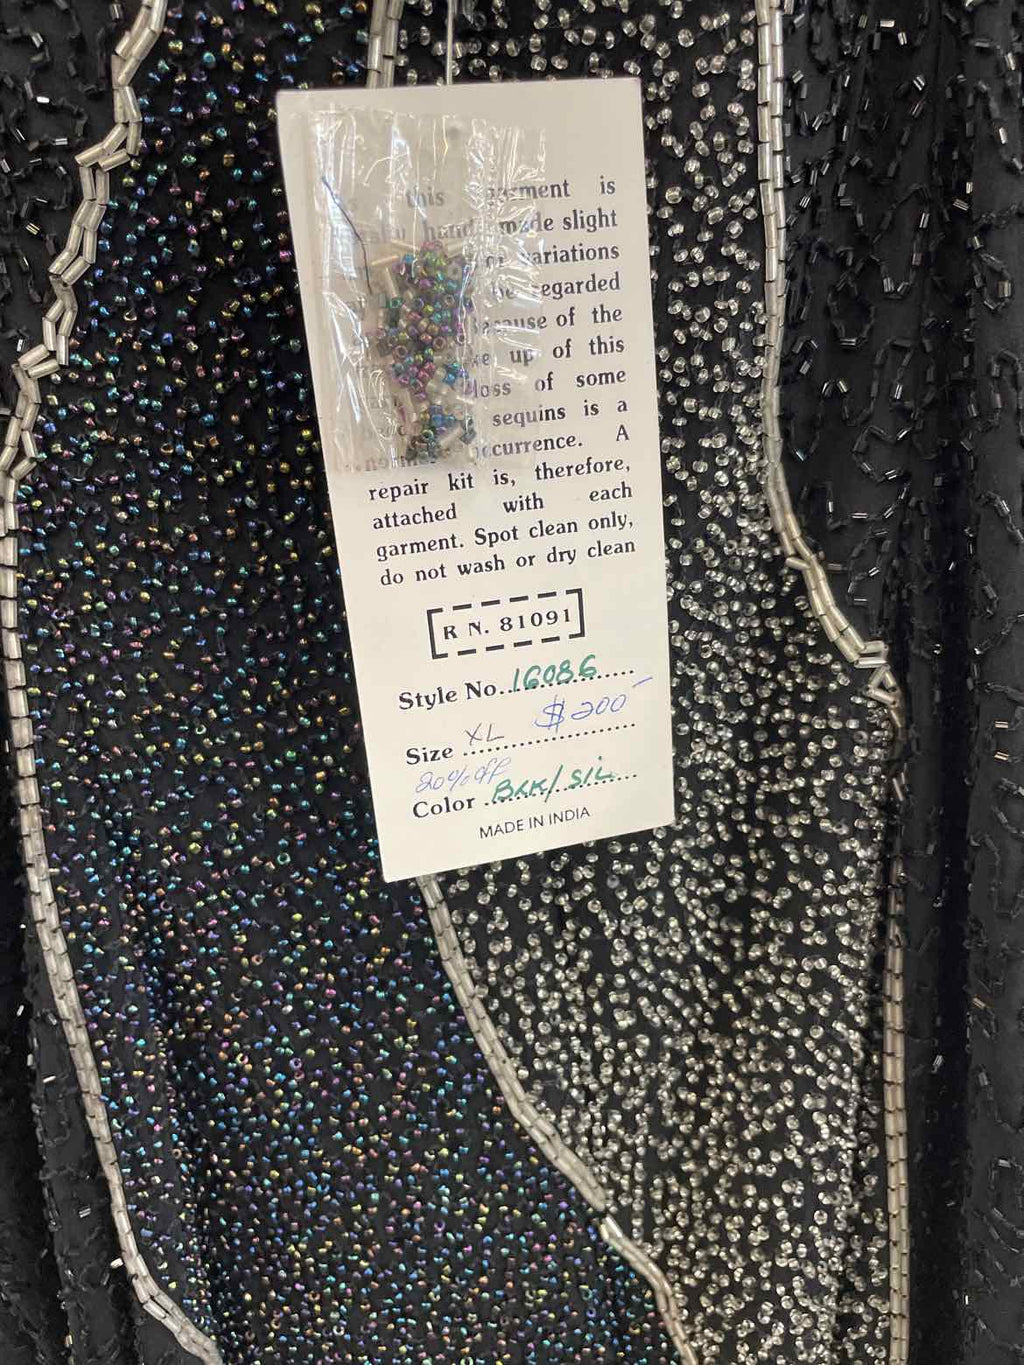 this garment is
hand made slight
or variations
be regarded
Because of the
up of this
loss of some
sequins is a
occurrence. A
repair kit is, therefore,
attached with each
garment. Spot clean only,
do not wash or dry clean
R N. 81091
Style No. 16086
Size XL $200-
20% off
Color BLK/SIL
MADE IN INDIA